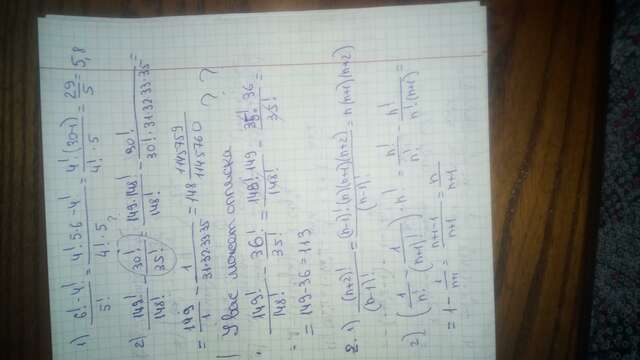 1) (6! - 4!)/5! = (4!·5·6 - 4!)/(4!·5) = (4!·(30-1))/(4!·5) = 29/5 = 5,8
2) 149!/148! - 30!/35! = (149·148!)/148! - 30!/(30!·31·32·33·35) =
= 149/1 - 1/(31·32·33·35) = 148 1145759/1145760 ? ?
! У вас может описка
149!/148! - 36!/35! = (148!·149)/148! - (35!·36)/35! =
= 149-36 = 113
2. 1) (n+2)!/(n-1)! = ((n-1)!(n)(n+1)(n+2))/(n-1)! = n(n+1)(n+2)
2) (1/n! - 1/(n+1)!)·n! = n!/n! - n!/(n!·(n+1)) =
= 1 - 1/(n+1) = (n+1-1)/(n+1) = n/(n+1)